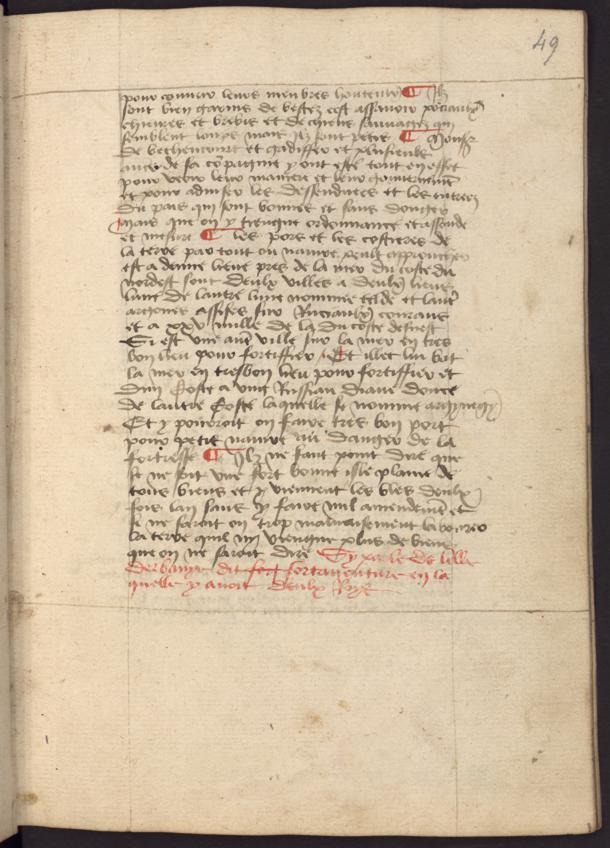 49
pour couurir leurs menbres honteux ¶ Ilz
sont bien garnis de bestez cest assauoir pourciaulx
chieures et brebis et de chiens sauuagez qui
semblent loups mais ilz sont petis ¶ Monsr
de bethencourt et gadiffer et plusieurs
aultres de sa compaignie y ont esté tout en effet
pour veoir leur maniere et leur gouuernement
et pour aduiser les dessendues et les entrees
du pais qui sont bonnes et sans dongier
mais que on y tiengne ordonnance
et mesure ¶ les pors et les costieres de
la terre par tout ou nauire peult approuchier
est a demie lieue pres de la mer du coste du
nordest sont deulx villes a deulx lieus
lune de lautre lune nommee telde et lautre
argones assises sur Ruciaulx courans
et a xxv mille de la du coste de suest
Si est une autre ville sur la mer en tres
bon lieu pour fortiffier / Et illec lui bat
la mer en tresbon lieu pour fortiffier et
dun coste a ung Russiau diaue douce
de lautre coste laquelle se nomme argynegy
Et y pourroit on faire tres bon port
pour petit nauire au dangier de la
forteresse ¶ Ilz ne fault point dire que
se ne soit une fort bonne isle plaine de
tous biens et y viennent les bles deulx
fois lan sans y faire nul amendement et
si ne saroit on trop maluaisement labourer
la terre quil ny viengne plus de biens
que on ne saroit dire Cy parle de lille
derbanye dit fort fortauenture en la
quelle y auoit deulx Roys